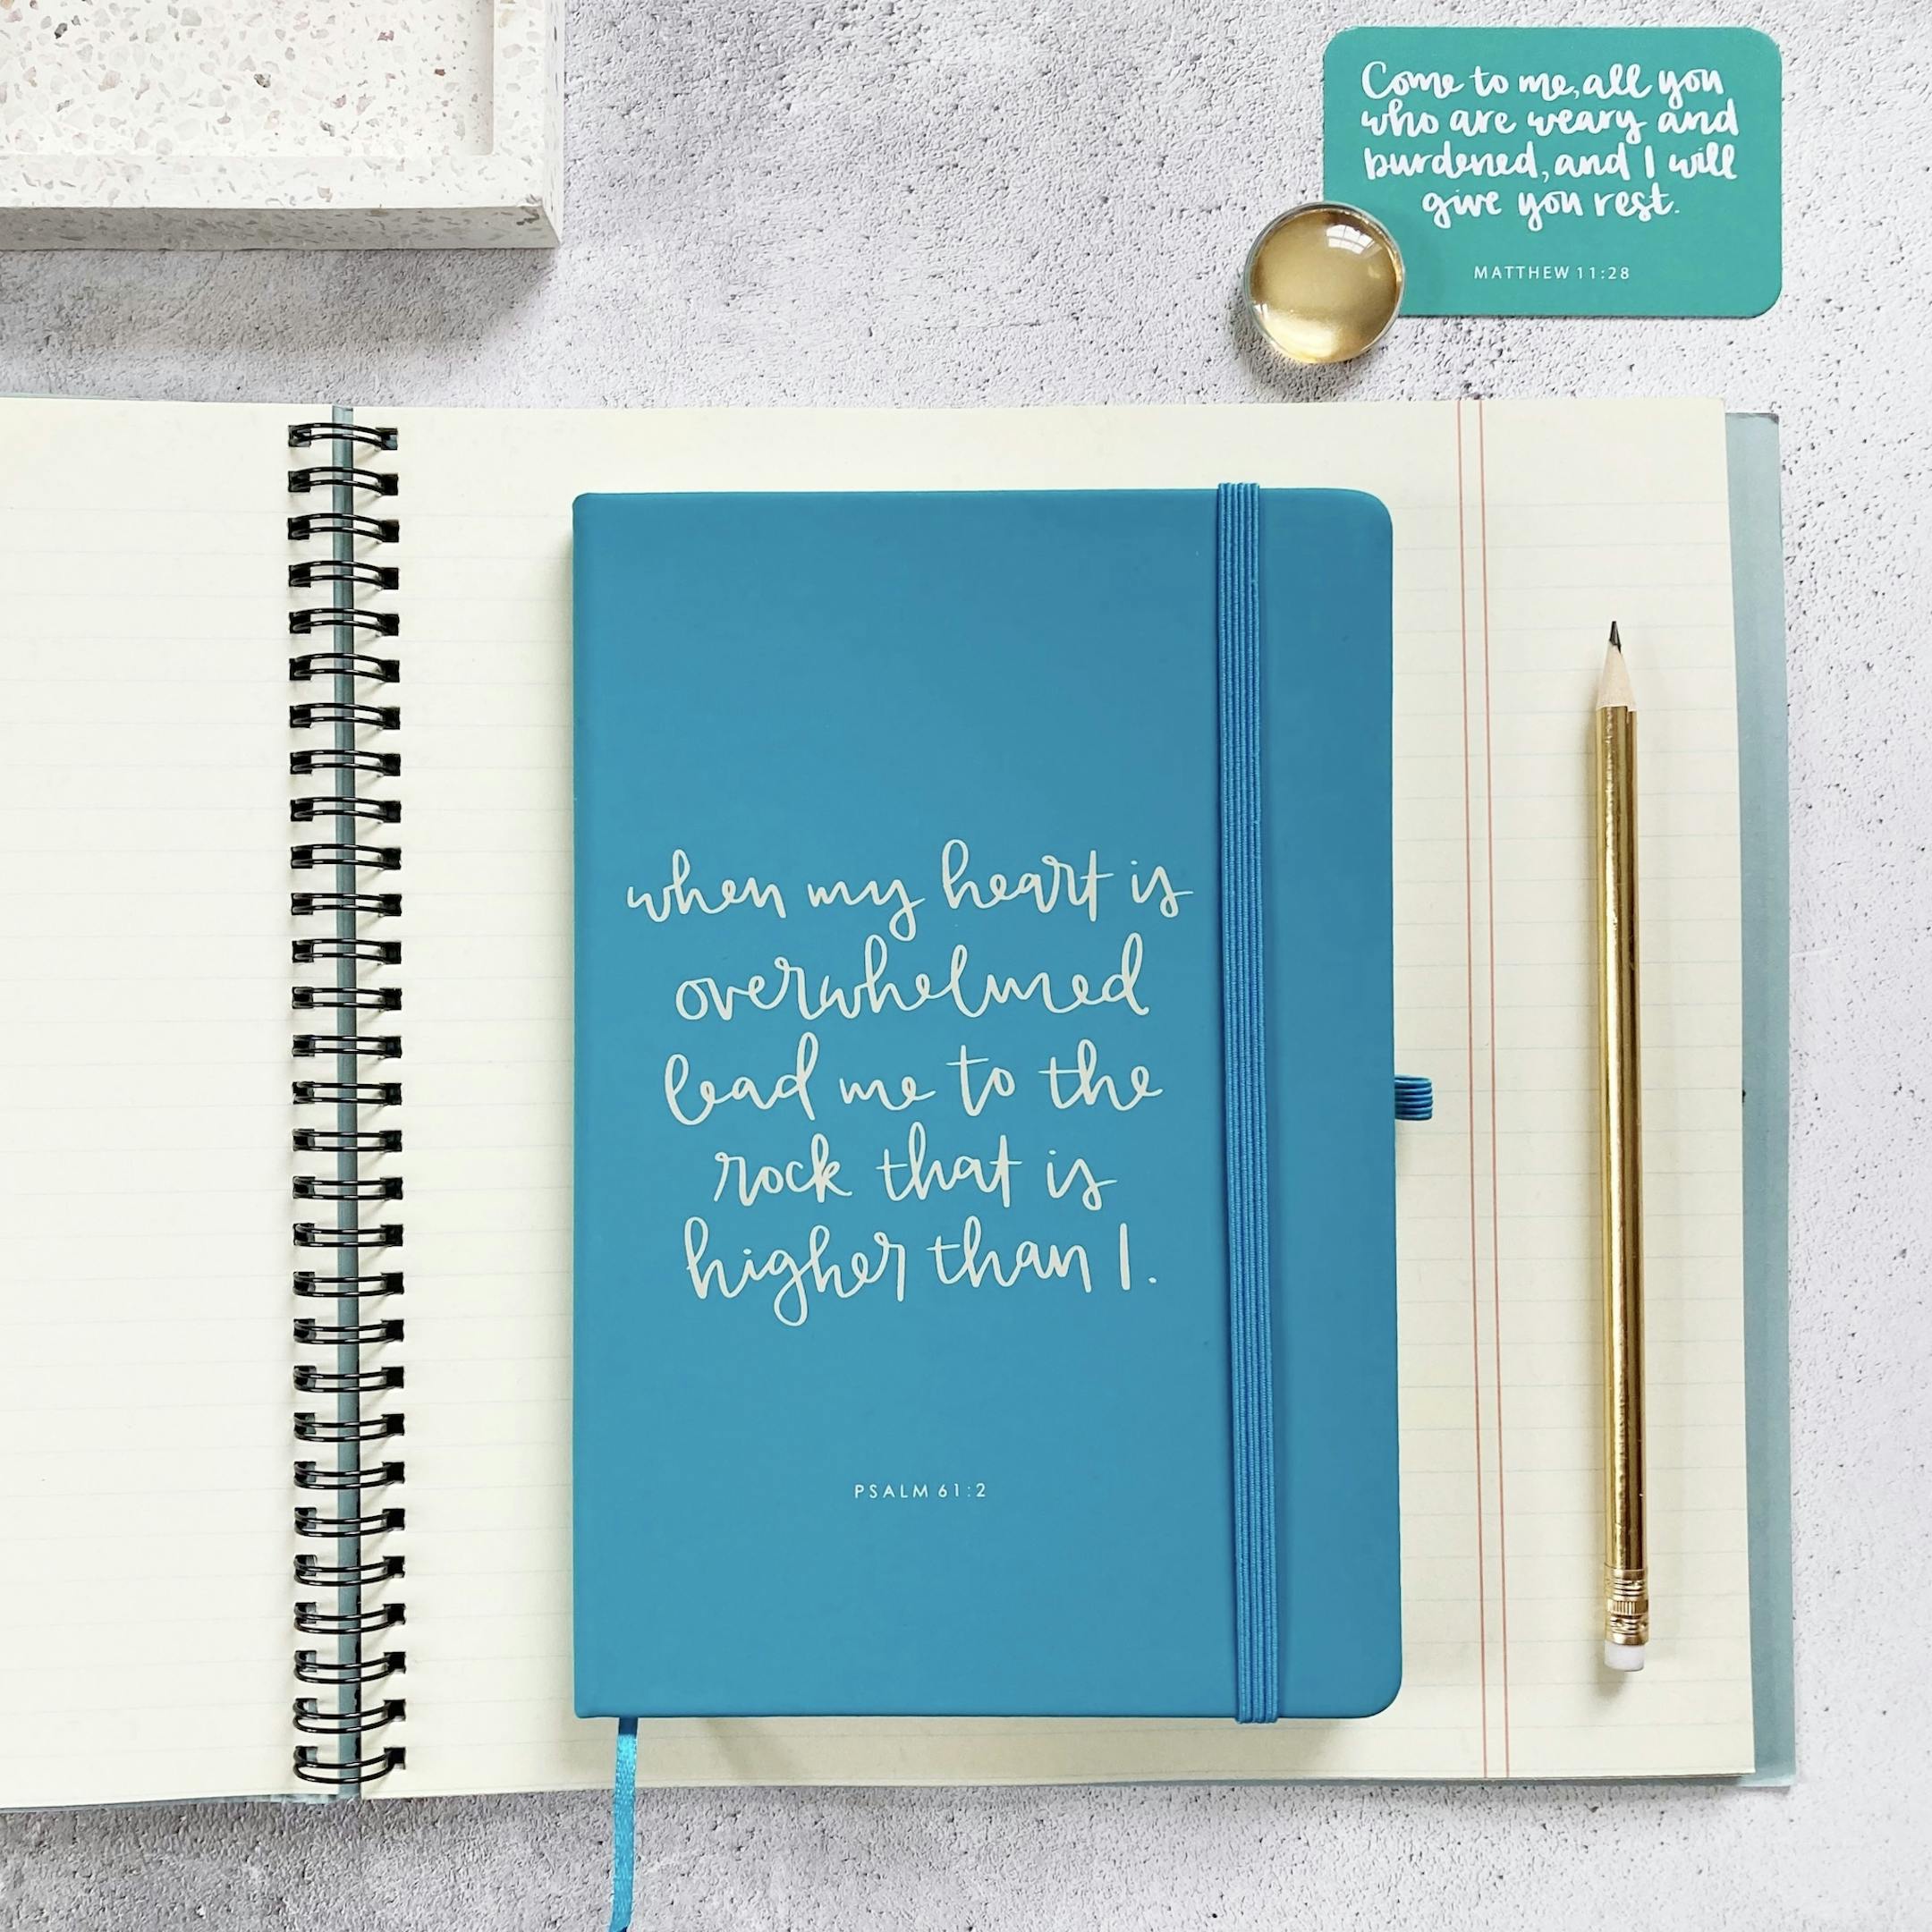 Come to me, all you
who are weary and
burdened, and I will
give you rest.
MATTHEW 11:28
when my heart is
overwhelmed
lead me to the
rock that is
higher than I.
PSALM 61:2